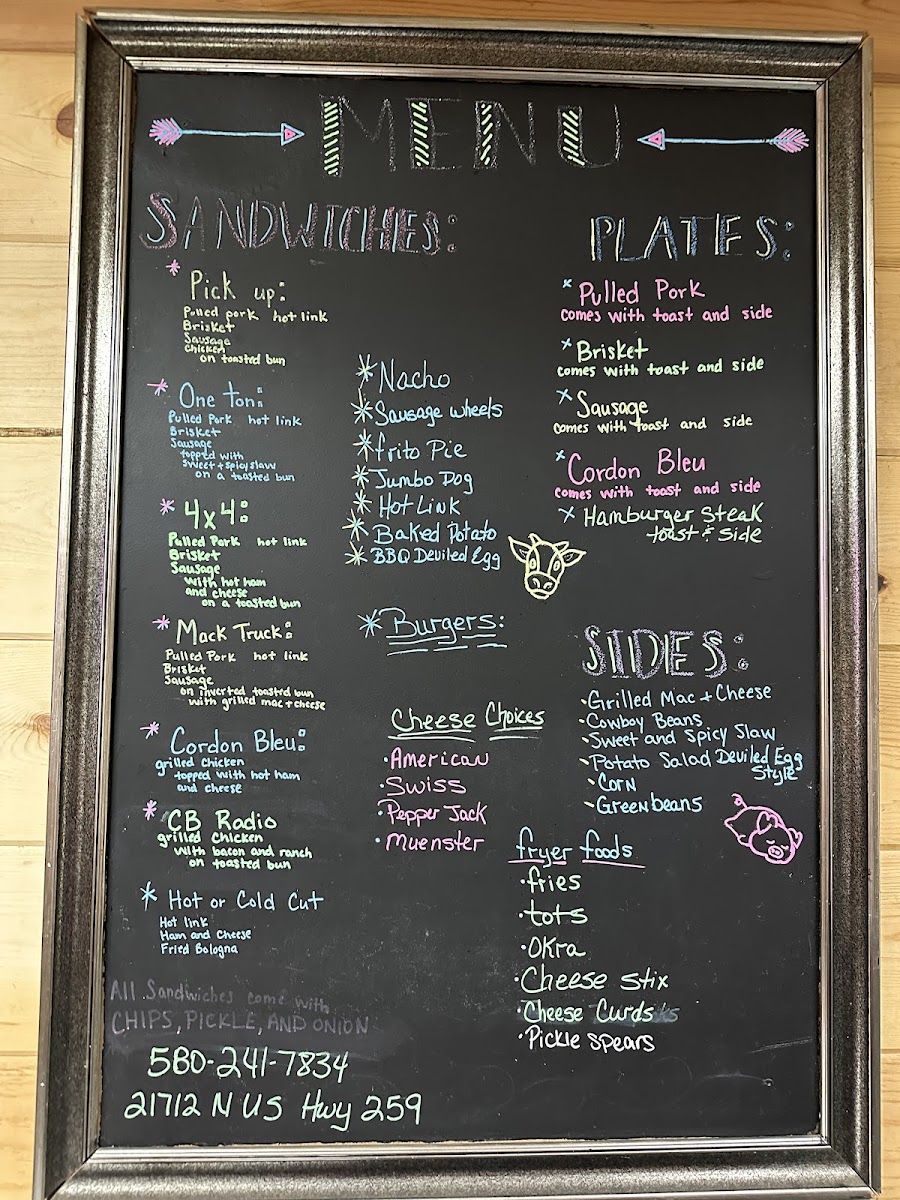 MENU
SANDWICHES:
* Pick up:
Pulled pork hot link
Brisket
Sausage
Chicken
on toasted bun
* One ton:
Pulled Pork hot link
Brisket
Sausage
topped with
sweet + spicy slaw
on a toasted bun
* 4x4:
Pulled Pork hot link
Brisket
Sausage
with hot ham
and cheese
on a toasted bun
* Mack Truck:
Pulled Pork hot link
Brisket
Sausage
on inverted toasted bun
with grilled mac + cheese
* Cordon Bleu:
grilled Chicken
topped with hot ham
and cheese
* CB Radio
grilled Chicken
with bacon and ranch
on toasted bun
* Hot or Cold Cut
Hot link
Ham and Cheese
Fried Bologna
All Sandwiches come with
CHIPS, PICKLE, AND ONION
580-241-7834
21712 N US Hwy 259
* Nacho
* Sausage wheels
* frito Pie
* Jumbo Dog
* Hot Link
* Baked Potato
* BBQ Deviled Egg
* Burgers:
Cheese Choices
· American
· Swiss
· Pepper Jack
· Muenster
PLATES:
* Pulled Pork
comes with toast and side
* Brisket
comes with toast and side
* Sausage
comes with toast and side
* Cordon Bleu
comes with toast and side
* Hamburger Steak
toast & Side
SIDES:
· Grilled Mac + Cheese
· Cowboy Beans
· Sweet and Spicy Slaw
· Potato Salad Deviled Egg
Style
· Corn
· Green beans
fryer foods
· fries
· tots
· Okra
· Cheese Stix
· Cheese Curds
· Pickle Spears